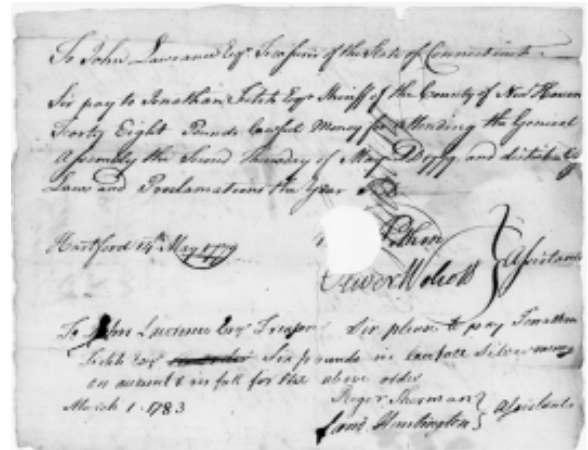 To John Lawrence Esqr Treasurer of the State of Connecticut
Sir pay to Jonathan Fitch Esqr Sheriff of the County of New Haven
Forty Eight Pounds lawful Money for attending the General
Assembly the Second Thursday of May and
Laws and Proclamations the Year
Hartford 14th May 1779
Oliver Wolcott } Assistants
To John Lawrence Esqr Treasurer Sir please to pay Jonathan
Fitch Esqr Six pounds in lawfull Silver money
on account & in full for the above order
March 1. 1783
Roger Sherman
Saml Huntington } Assistants